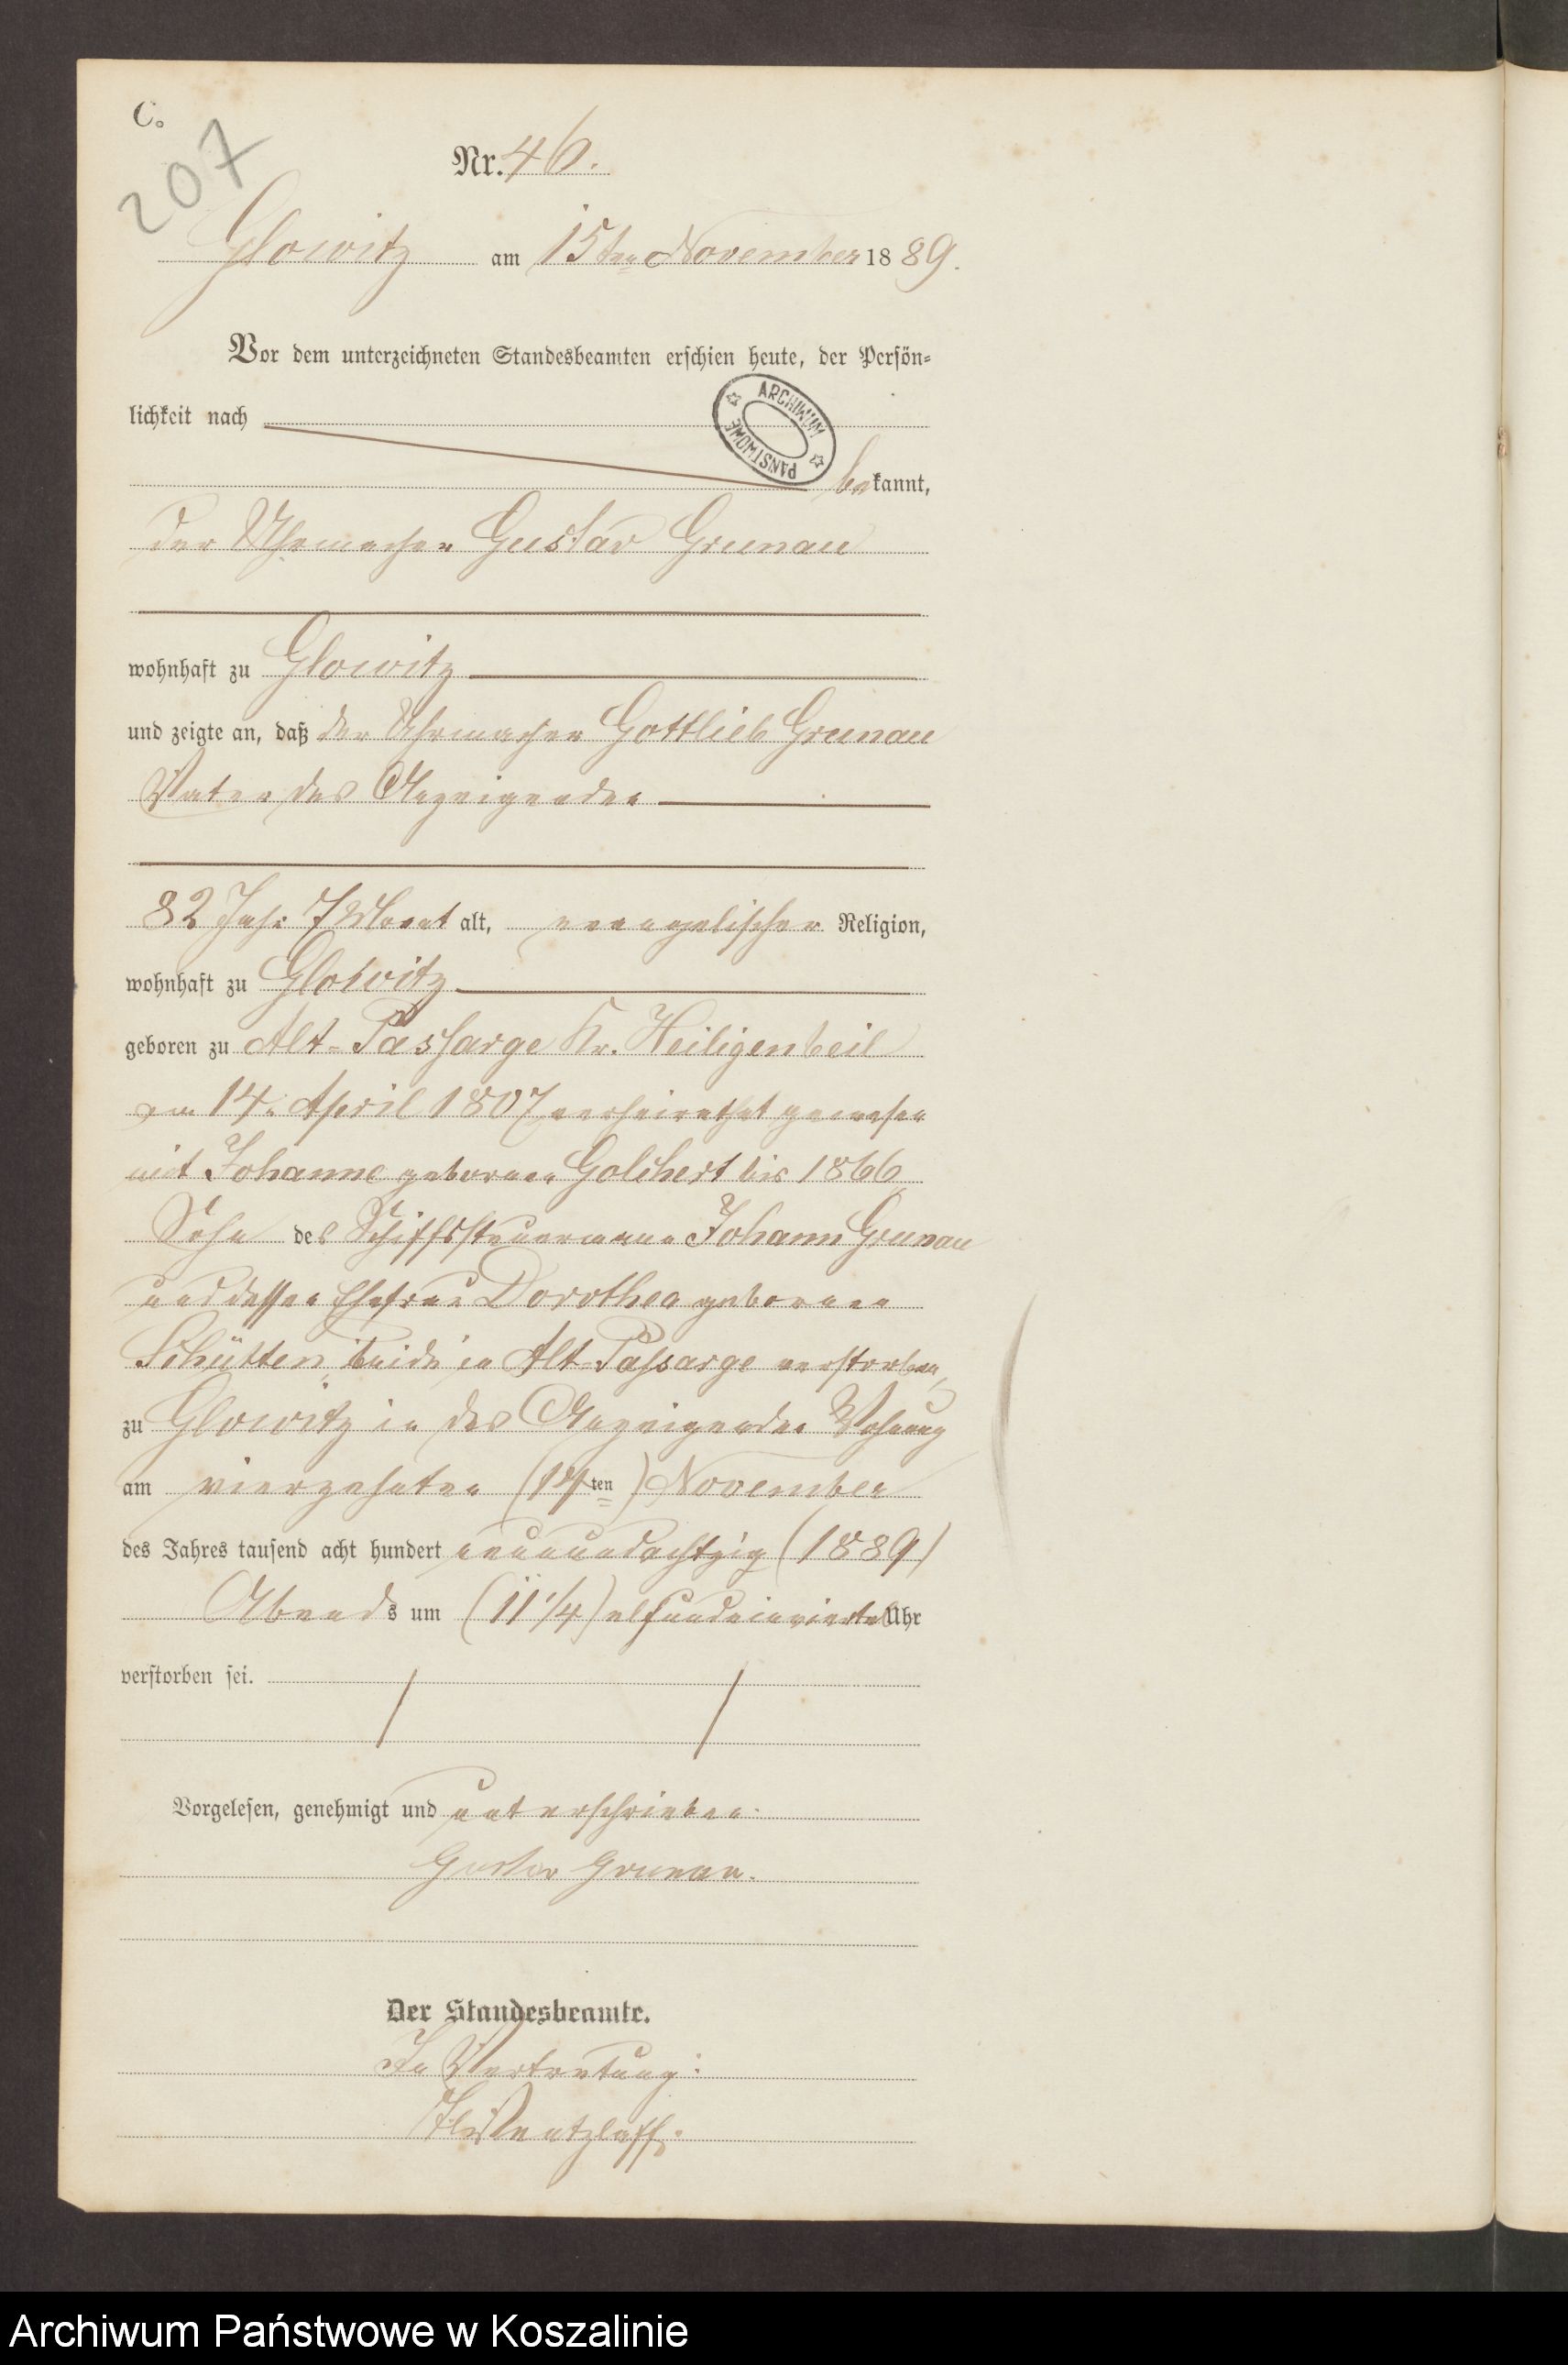 C.
207
Nr. 46.
Glowitz am 15ten November 1889.
Vor dem unterzeichneten Standesbeamten erschien heute, der Persön-
lichkeit nach
ARCHIWUM PANSTWOWE
bekannt,
der Uhrmacher Gustav Grunau
wohnhaft zu Glowitz
und zeigte an, daß der Uhrmacher Gottlieb Grunau
Vater des Anzeigenden
82 Jahr 7 Monat alt, evangelischer Religion,
wohnhaft zu Glowitz
geboren zu Alt-Passarge Kr. Heiligenbeil
am 14. April 1807 verheirathet gewesen
mit Johanne geborenen Golchert bis 1866,
Sohn des Schiffssteuermann Johann Grunau
und dessen Ehefrau Dorothea geborenen
Schütten, beide in Alt-Passarge verstorben,
zu Glowitz in des Anzeigenden Wohnung
am vierzehnten (14ten) November
des Jahres tausend acht hundert neunundachtzig (1889)
Abends um (11 1/4) elfundeinviertel Uhr
verstorben sei.
Vorgelesen, genehmigt und unterschrieben.
Gustav Grunau.
Der Standesbeamte.
In Vertretung:
Archiwum Państwowe w Koszalinie